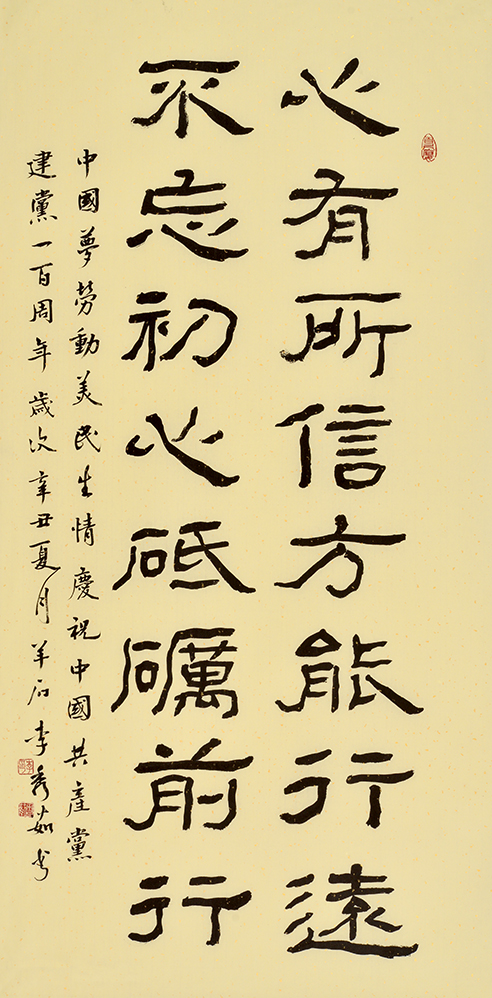 心有所信方能行遠
不忘初心砥礪前行
中國夢勞動美民生情慶祝中國共產黨
建黨一百周年歲次辛丑夏月羊石李秀茹書